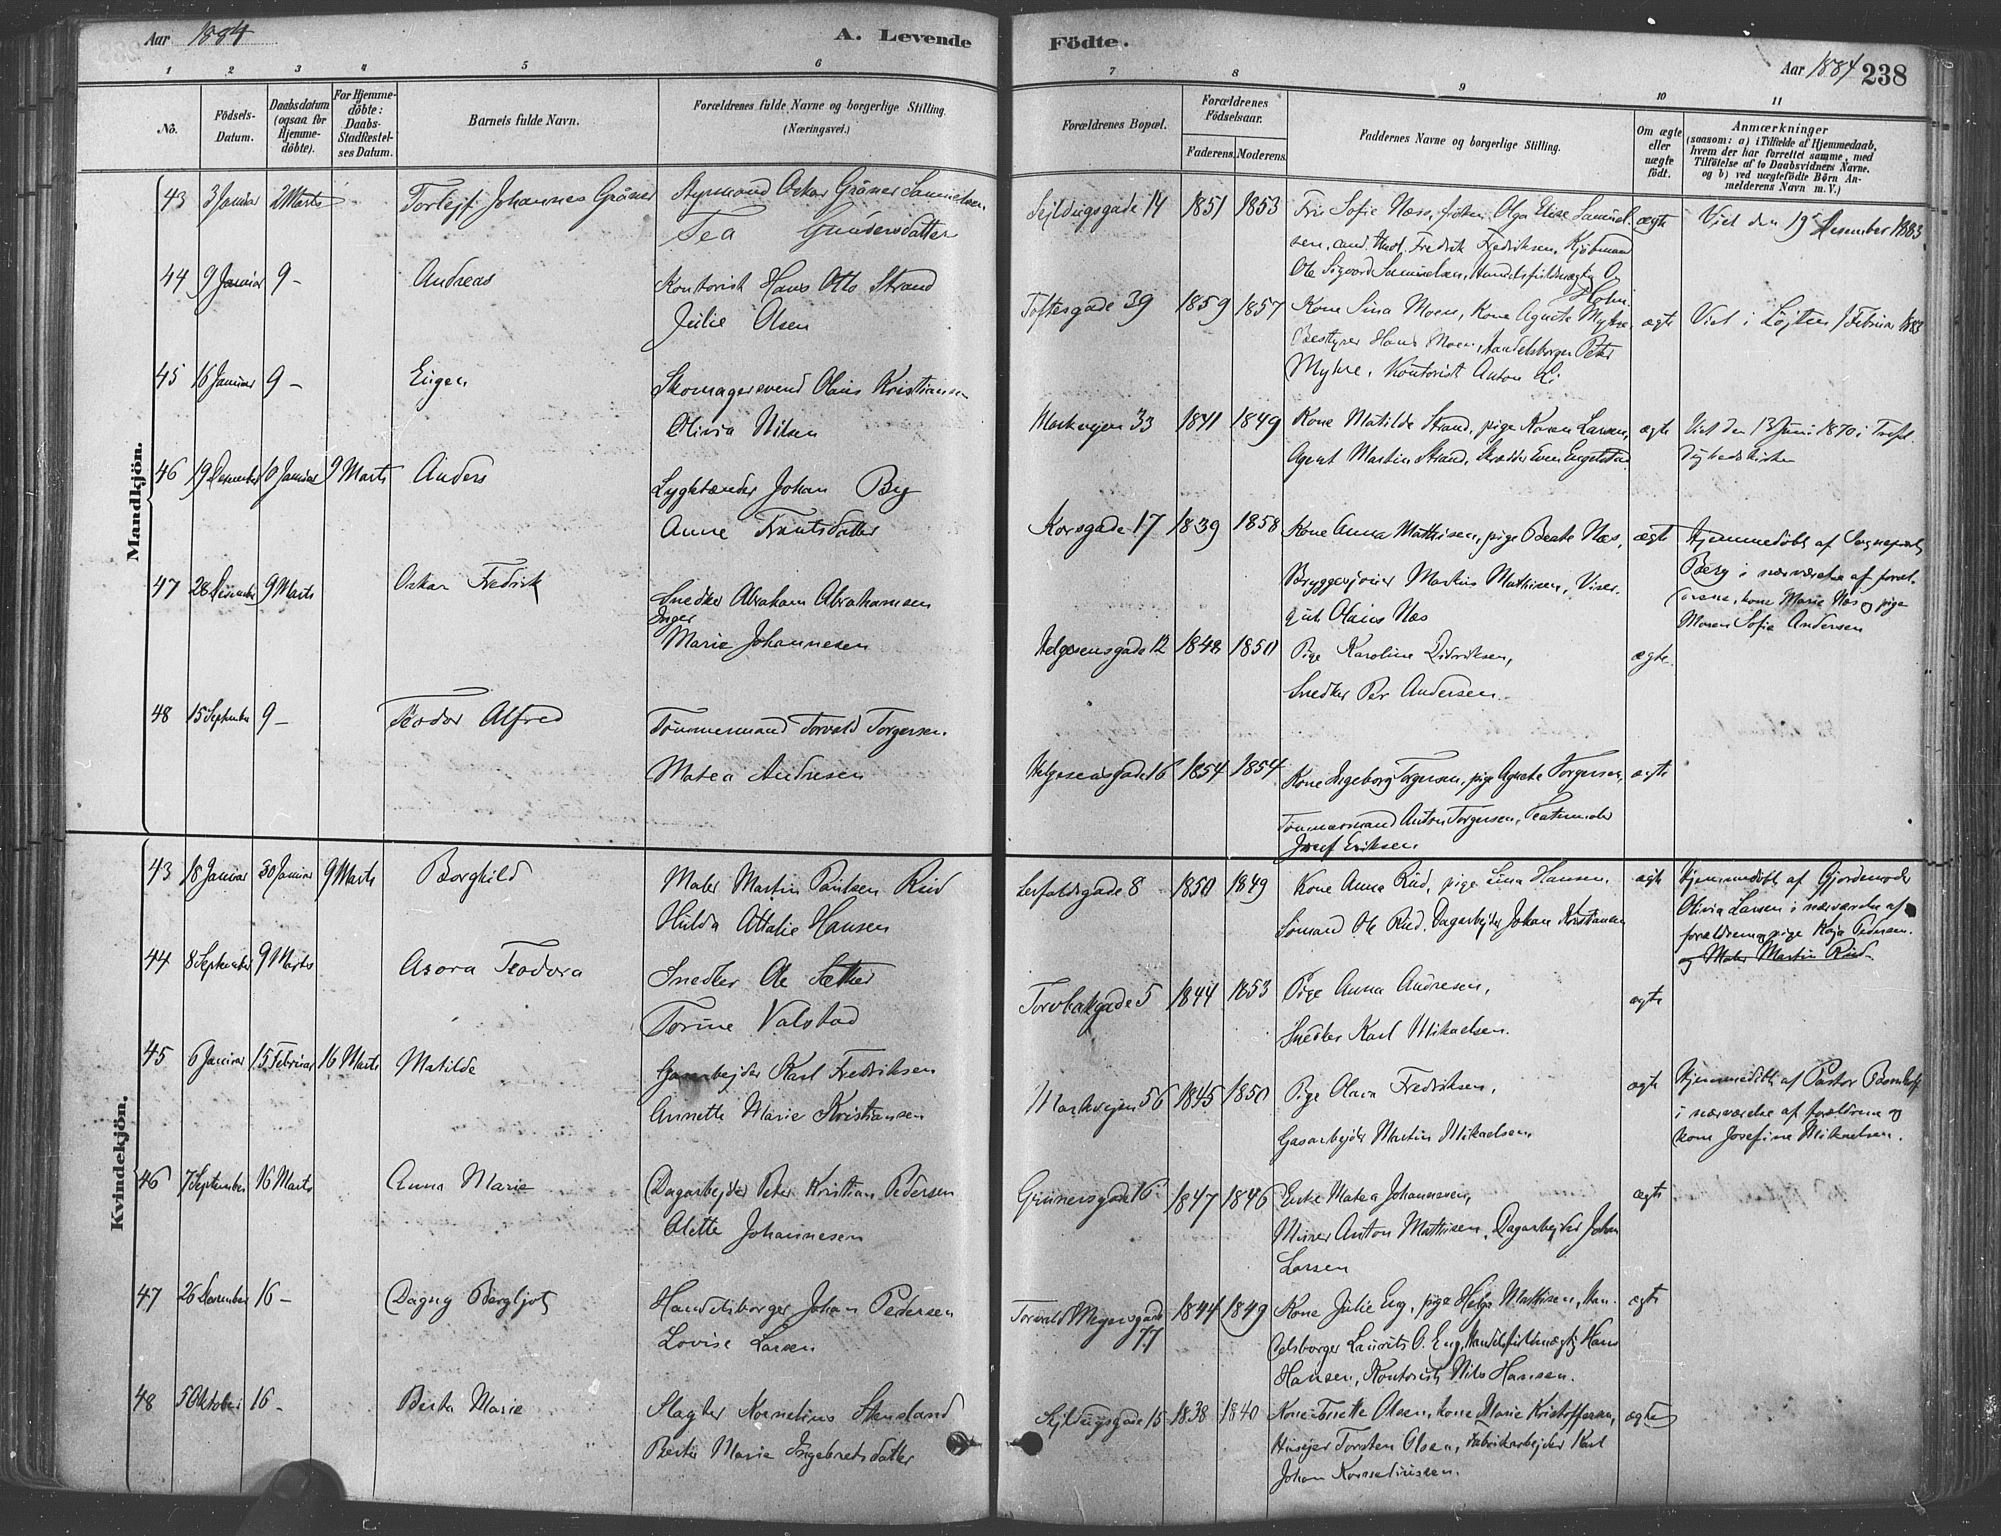 Aar 1884
A. Levende
Födte.
Aar 1884
238
1 2 3 4 5 6 7 8 9 10 11
No.
Födsels-
Datum.
Daabsdatum
(ogsaa for
Hjemme-
döbte).
For Hjemme-
döbte:
Daabs-
Stadfæstel-
ses Datum.
Barnets fulde Navn.
Forældrenes fulde Navne og borgerlige Stilling.
(Næringsvei.)
Forældrenes Bopæl.
Forældrenes
Födselsaar.
Faderens. Moderens.
Faddernes Navne og borgerlige Stilling.
Om ægte
eller
uægte
födt.
Anmærkninger
(saasom: a) i Tilfælde af Hjemmedaab,
hvem der har forrettet samme, med
Tilföielse af to Daabsvidners Navne.
og b) ved uægtefödte Börn An-
melderens Navn m. V.)
Mandkjön.
43 3 Januar 2 Marts Torleif Johannes Gråner Styrmand Oskar Gråner Samuelsen
Tea Gundersdatter
Sejldugsgade 14 1851 1853 Fru Sofie Næss, frøken Olga Elise Samuel-
sen, cand. theol. Fredrik Fredriksen, Kjøbmand
Ole Sigvard Samuelsen, Handelsfuldmægtig O.
Holm.
ægte Viet den 19 Desember 1883.
44 9 Januar 9 - Andreas Kontorist Hans Otto Strand
Julie Olsen
Toftesgade 39 1859 1857 Kone Lina Moen, Kone Agnete Myhre,
Bestyrer Hans Moen, Handelsborger Peter
Myhre, Kontorist Anton Li
ægte Viet i Løjten 1 Februar 1883
45 16 Januar 9 - Eugen Skomagersvend Olaus Kristiansen
Olivia Nilsen
Markvejen 33 1841 1849 Kone Matilde Strand, pige Karen Larsen,
Agent Martin Strand, Skrædder Even Engelstad
ægte Viet den 13 Juni 1870 i Trefol-
dighedskirken
46 19 Desember 10 Januar 9 Marts Anders Lygtetænder Johan By
Anne Frantsdatter
Korsgade 17 1839 1858 Kone Anna Mathisen, pige Beate Næs,
Bryggerjoier Markus Mathisen, Viser-
gut Olaus Næs
ægte Hjemmedöbt af Sogneprest
Berg i nærværelse af foræl-
drene, kone Marie Næs og pige
Maren Sofie Andersen
47 28 Desember 9 Marts Oskar Fredrik Snedker Abraham Abrahamsen
Inger
Marie Johannesen
Helgesensgade 12 1848 1850 Pige Karoline Didriksen,
Snedker Per Andersen.
ægte.
48 15 September 9 - Teodor Alfred Tömmermand Torvald Torgersen.
Matea Andresen
Helgesensgade 16 1854 1854 Kone Ingeborg Torgersen, pige Agnete Torgersen,
Tömmermand Anton Torgersen, Teatermaler
Josef Eriksen.
ægte
Kvindekjön.
43 18 Januar 30 Januar 9 Marts Borghild Maler Martin Paulsen Rud
Hulda Attalie Hansen
Lerfaldsgade 8 1850 1849 Kone Anna Rud, pige Lina Hansen,
Sömand Ole Rud, Dagarbejder Johan Kristiansen
ægte Hjemmedöbt af Gjordemoder
Olivia Larsen i nærværelse af
forældrene og pige Kaja Pedersen.
og Maler Martin Rud
44 8 September 9 Marts Asora Teodora Snedker Ole Sæther
Torine Valstad
Torvbakgade 5 1844 1853 Pige Anna Andresen,
Snedker Karl Mikaelsen.
ægte
45 6 Januar 15 Februar 16 Marts Matilde Gasarbejder Karl Fredriksen
Annette Marie Kristiansen
Markvejen 56 1845 1850 Pige Olava Fredriksen,
Gasarbejder Martin Mikaelsen.
ægte Hjemmedöbt af Pastor
i nærværelse af forældrene og
kone Josefine Mikaelsen.
46 7 September 16 Marts Anna Marie Dagarbejder Peter Kristian Pedersen
Olette Johannesen
Grünersgade 16 1847 1846 Enke Matea Johannesen,
Murer Anton Mathisen, Dagarbejder Johan
Larsen
ægte
47 26 Desember 16 - Dagny Bergljot Handelsborger Johan Pedersen
Lovise Larsen
Torvald Meyersgade
77 1844 1849 Kone Julie Eng, pige Helga Mathisen, Han-
delsborger Laurits O. Eng, Handelsfuldmægtig Hans
Hansen, Kontorist Nils Hansen.
ægte
48 5 Oktober 16 - Berta Marie Slagter Kornelius Stensland
Berte Marie Ingebretsdatter
Sejldugsgade 15 1838 1840 Kone Josette Olsen, kone Marie Kristoffersen,
Husejer Torsten Olsen, Fabrikarbejder Karl
Johan Korneliussen.
ægte